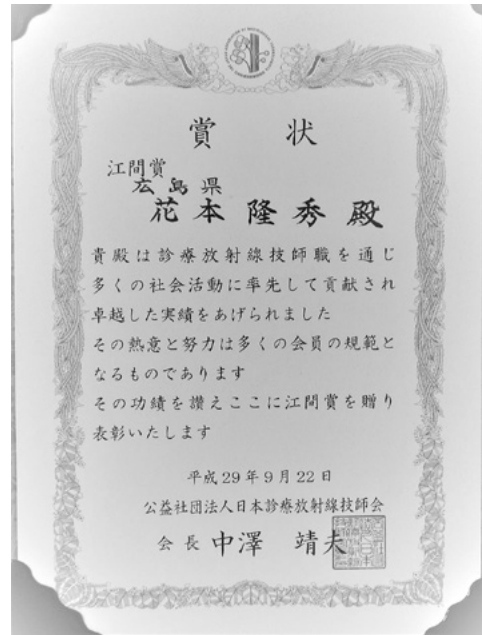 賞状
江間賞
広島県
花本隆秀殿
貴殿は診療放射線技師職を通じ
多くの社会活動に率先して貢献され
卓越した実績をあげられました
その熱意と努力は多くの会員の規範と
なるものであります
その功績を讃えここに江間賞を贈り
表彰いたします
平成29年9月22日
公益社団法人日本診療放射線技師会
会長 中澤 靖夫